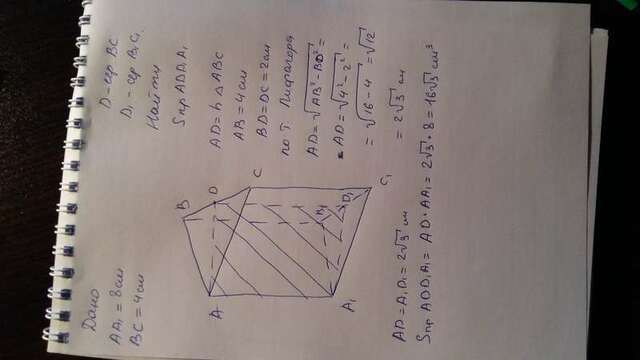 Дано
AA₁ = 8 см
BC = 4 см
D - сер. BC.
D₁ - сер B₁C₁
Найти
Sпр ADD₁A₁
B
D
C
A
B₁
D₁
C₁
A₁
AD = h △ ABC
AB = 4 см
BD = DC = 2 см
по т. Пифагора
AD = √AB² - BD² =
AD = √4² - 2² =
= √16 - 4 = √12
= 2√3 см
AD = A₁D₁ = 2√3 см
Sпр ADD₁A₁ = AD · AA₁ = 2√3 · 8 = 16√3 см²